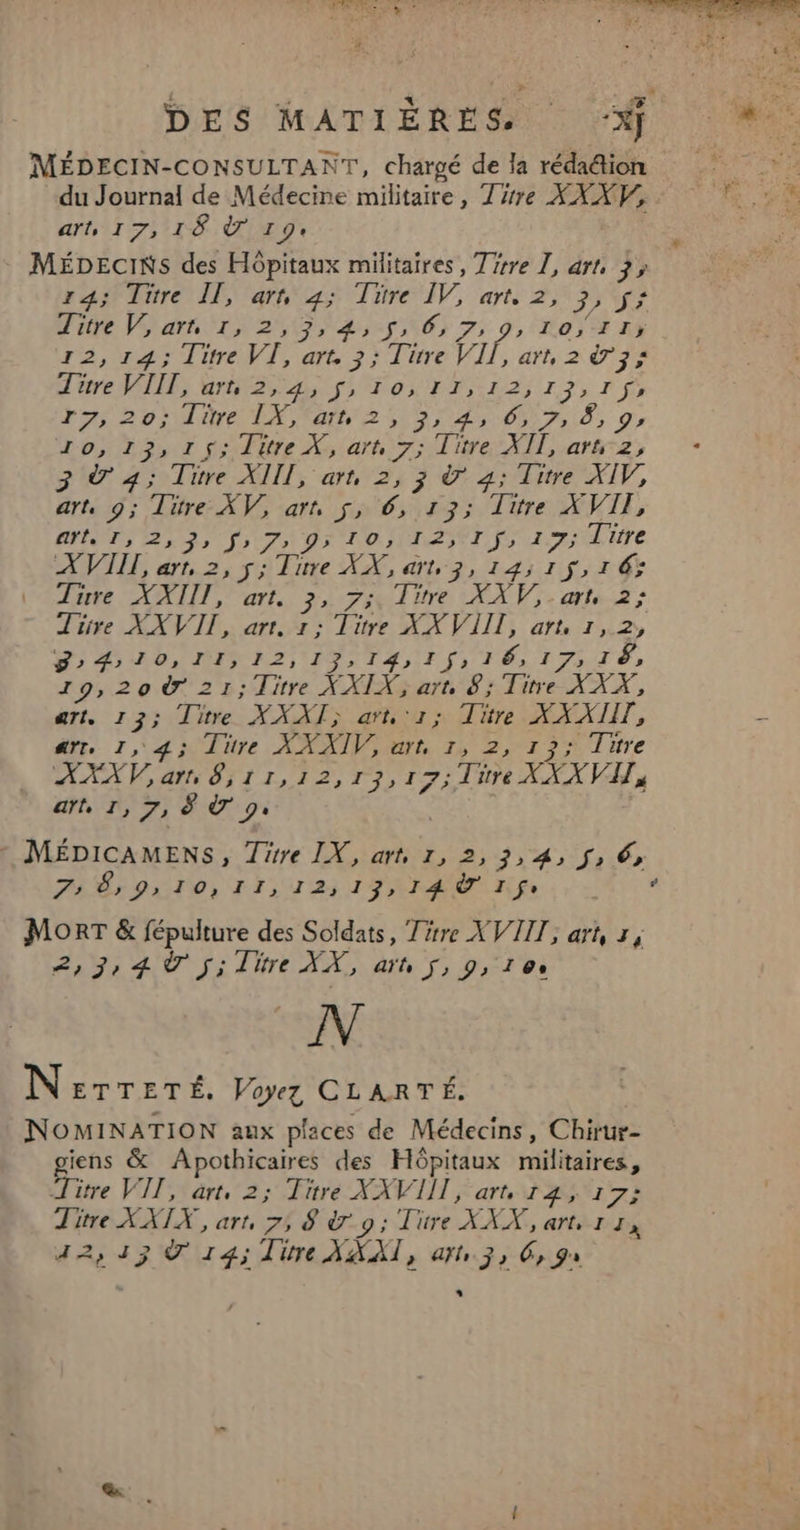 DES MATIÈRES. xj
MÉDECIN-CONSULTANT, chargé de la rédaction
du Journal de Médecine militaire, Titre XXXV,
art. 17, 18 & 19.
MÉDECINS des Hôpitaux militaires, Titre I, art. 3,
14; Titre II, art. 4; Titre IV, art. 2, 3, 5;
Titre V, art. 1, 2, 3, 4, 5, 6, 7, 9, 10, 11,
12, 14; Titre VI, art. 3; Titre VII, art. 2 & 3;
Titre VIII, art. 2, 4, 5, 10, 11, 12, 13, 15,
17, 20; Titre IX, art. 2, 3, 4, 6, 7, 8, 9,
10, 13, 15; Titre X, art. 7; Titre XII, art. 2,
3 & 4; Titre XIII, art. 2, 3 & 4; Titre XIV,
art. 9; Titre XV, art. 5, 6, 13; Titre XVII,
art. 1, 2, 3, 5, 7, 9, 10, 12, 15, 17; Titre
XVIII, art. 2, 5; Titre XX, art. 3, 14, 15, 16;
Titre XXIII, art. 3, 7; Titre XXV, art. 2;
Titre XXVII, art. 1; Titre XXVIII, art. 1, 2,
3, 4, 10, 11, 12, 13, 14, 15, 16, 17, 18,
19, 20 & 21; Titre XXIX, art. 8; Titre XXX,
art. 13; Titre XXXI, art. 1; Titre XXXIII,
art. 1, 4; Titre XXXIV, art. 1, 2, 13; Titre
XXXV, art. 8, 11, 12, 13, 17; Titre XXXVII,
art. 1, 7, 8 & 9.
MÉDICAMENS, Titre IX, art. 1, 2, 3, 4, 5, 6,
7, 8, 9, 10, 11, 12, 13, 14 & 15.
MORT & sépulture des Soldats, Titre XVIII, art. 1,
2, 3, 4 & 5; Titre XX, art. 5, 9, 10.
N
NETTETÉ. Voyez CLARTÉ.
NOMINATION aux places de Médecins, Chirur-
giens & Apothicaires des Hôpitaux militaires,
Titre VII, art. 2; Titre XXVIII, art. 14, 17;
Titre XXIX, art. 7, 8 & 9; Titre XXX, art. 11,
12, 13 & 14; Titre XXXI, art. 3, 6, 9.